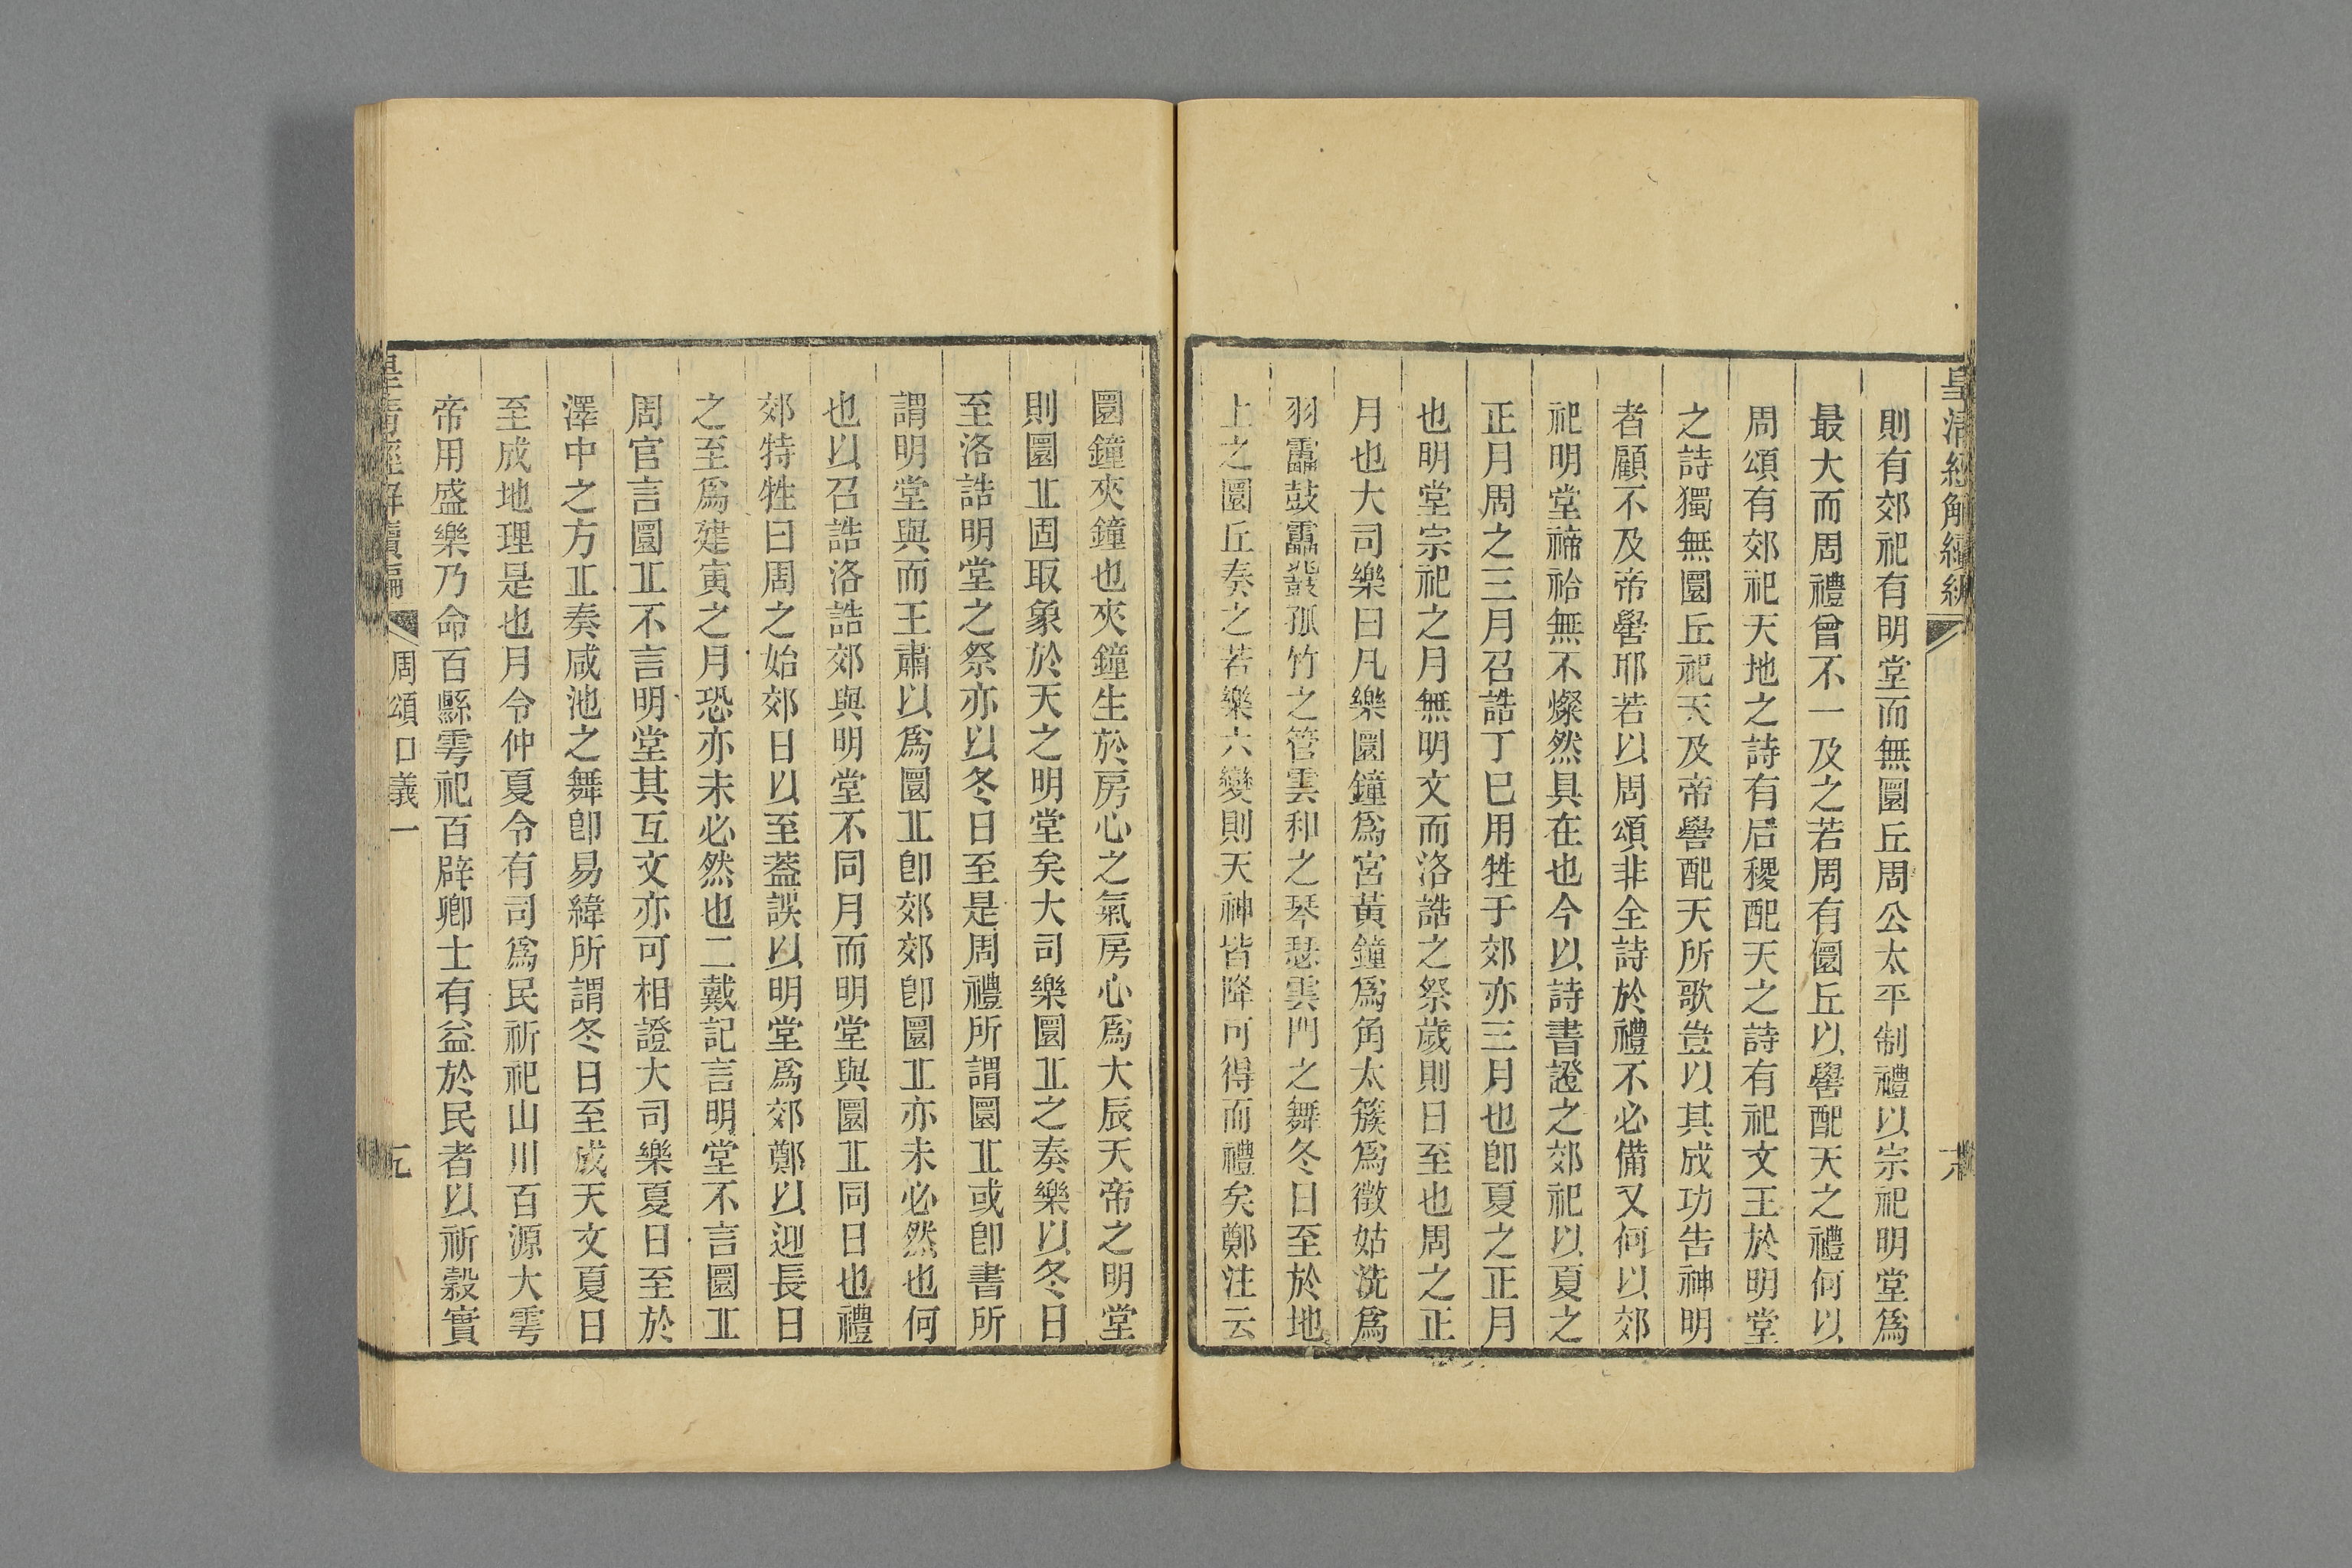 皇清經解續編
則有郊祀有明堂而無圜丘周公太平制禮以宗祀明堂爲
最大而周禮曾不一及之若周有圜丘以嚳配天之禮何以
周頌有郊祀天地之詩有后稷配天之詩有祀文王於明堂
之詩獨無圜丘祀天及帝嚳配天所歌豈以其成功告神明
者顧不及帝嚳耶若以周頌非全詩於禮不必備又何以郊
祀明堂禘祫無不燦然具在也今以詩書證之郊祀以夏之
正月周之三月召誥丁巳用牲于郊亦三月也卽夏之正月
也明堂宗祀之月無明文而洛誥之祭歲則日至也周之正
月也大司樂曰凡樂圜鐘爲宮黃鐘爲角太簇爲徵姑洗爲
羽靁鼓靁鼗孤竹之管雲和之琴瑟雲門之舞冬日至於地
上之圜丘奏之若樂六變則天神皆降可得而禮矣鄭注云
圜鐘夾鐘也夾鐘生於房心之氣房心爲大辰天帝之明堂
則圜丠固取象於天之明堂矣大司樂圜丠之奏樂以冬日
至洛誥明堂之祭亦以冬日至是周禮所謂圜丠或卽書所
謂明堂與而王肅以爲圜丠卽郊郊卽圜丠亦未必然也何
也以召誥洛誥郊與明堂不同月而明堂與圜丠同日也禮
郊特牲曰周之始郊日以至蓋誤以明堂爲郊鄭以迎長日
之至爲建寅之月恐亦未必然也二戴記言明堂不言圜丠
周官言圜丠不言明堂其互文亦可相證大司樂夏日至於
澤中之方丠奏咸池之舞卽易緯所謂冬日至成天文夏日
至成地理是也月令仲夏令有司爲民祈祀山川百源大雩
帝用盛樂乃命百縣雩祀百辟卿士有益於民者以祈穀實
皇清經解續編 周頌口義一